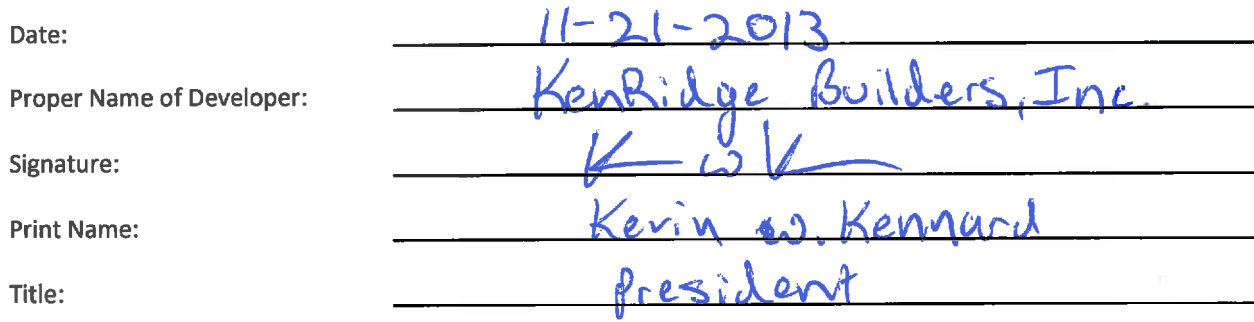 Date: 11-21-2013
Proper Name of Developer: KenRidge Builders, Inc.
Signature: K w K
Print Name: Kevin W. Kennard
Title: President